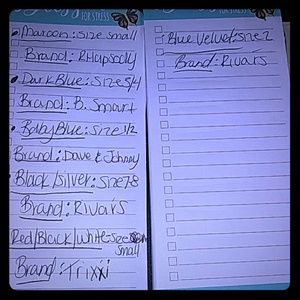 FOR STRESS
• Maroon: Size small
Brand: Rhapsody
• Dark Blue: Size 3/4
Brand: B. Smart
• Baby Blue: Size 1/2
Brand: Dave & Johnny
• Black/Silver: Size 7-8
Brand: Rivar's
Red/Black/White-size small
Brand: Trixxi
FOR STRESS
Blue Velvet: Size 2
Brand: Rivar's